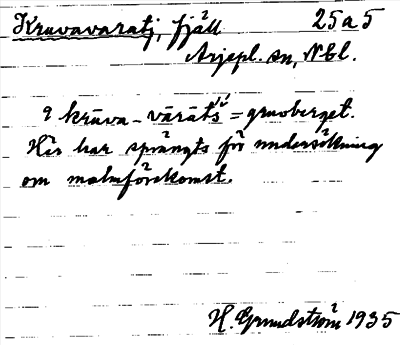 Kruvavaratj, fjäll 25a5
Arjepl. sn, Nbl.
kruva-vàràts = gruvberget.
Här har sprängts för undersökning
om malmförekomst.
H. Grundström 1935